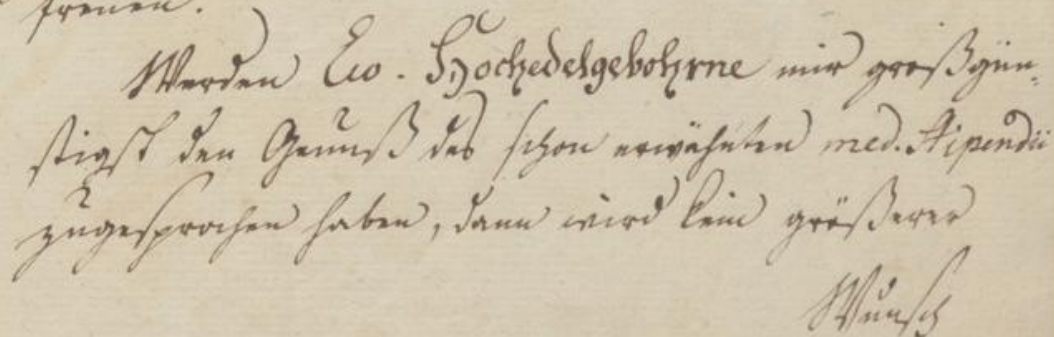 freuen.
Werden Ew. Hochedelgebohrne mir großgün-
stigst den Genuß des schon erwähnten med. Stipendii
zugesprochen haben, dann wird kein größerer
Wunsch